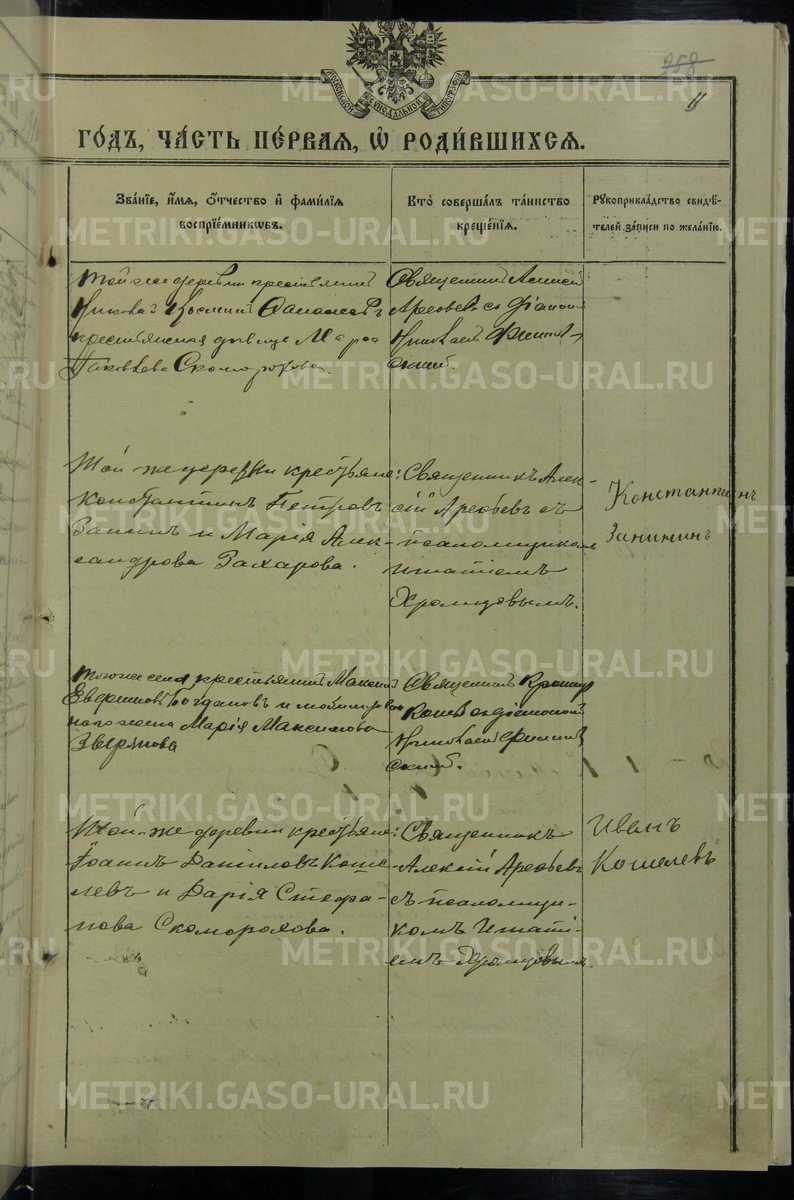 258
11
МОСКОВСКОЙ СѴНОДАЛЬНОЙ ТИПОГРАФІИ
ГО́ДЪ, ЧА́СТЬ ПЕ́РВАѦ, Ѡ҆ РОДИ́ВШИХСѦ.
Зва́нїе, и҆́мѧ, ѻ҆́тчество и҆ фами́лїѧ
воспрїе́мникѡвъ.
Кто̀ соверша́лъ та́инство
креще́нїѧ.
Рꙋкоприкла́дство свидѣ-
телей за́писи по жела́нїю.
Той же деревни крестьянин
Аѳанасьев
крестьянская девица
Яковлева Скоморохова.
Священник Алексей
Арефьев с діаконом
Николаем
Той же деревни крестьяне:
Константинъ Петровъ
Занинъ и Марія Алек-
сандрова Захарова.
Священникъ Алек-
сій Арефьевъ съ
псаломщикомъ
Игнатіемъ
Храмцовымъ.
Константинъ
Занининъ
Того же села крестьянин Максим
Богдановъ и
жена Марія Максимова
Зверянова
Священник
с діаконом
Николаем
Той-же деревни крестьяне:
Іоаннъ Даніиловъ Коше
левъ и Дарія Стефа-
нова Скоморохова.
Священникъ
Алексій Арефьевъ
съ псаломщи-
комъ Игнаті-
емъ Храмцовымъ.
Иванъ
Кошелевъ
METRIKI.GASO-URAL.RU